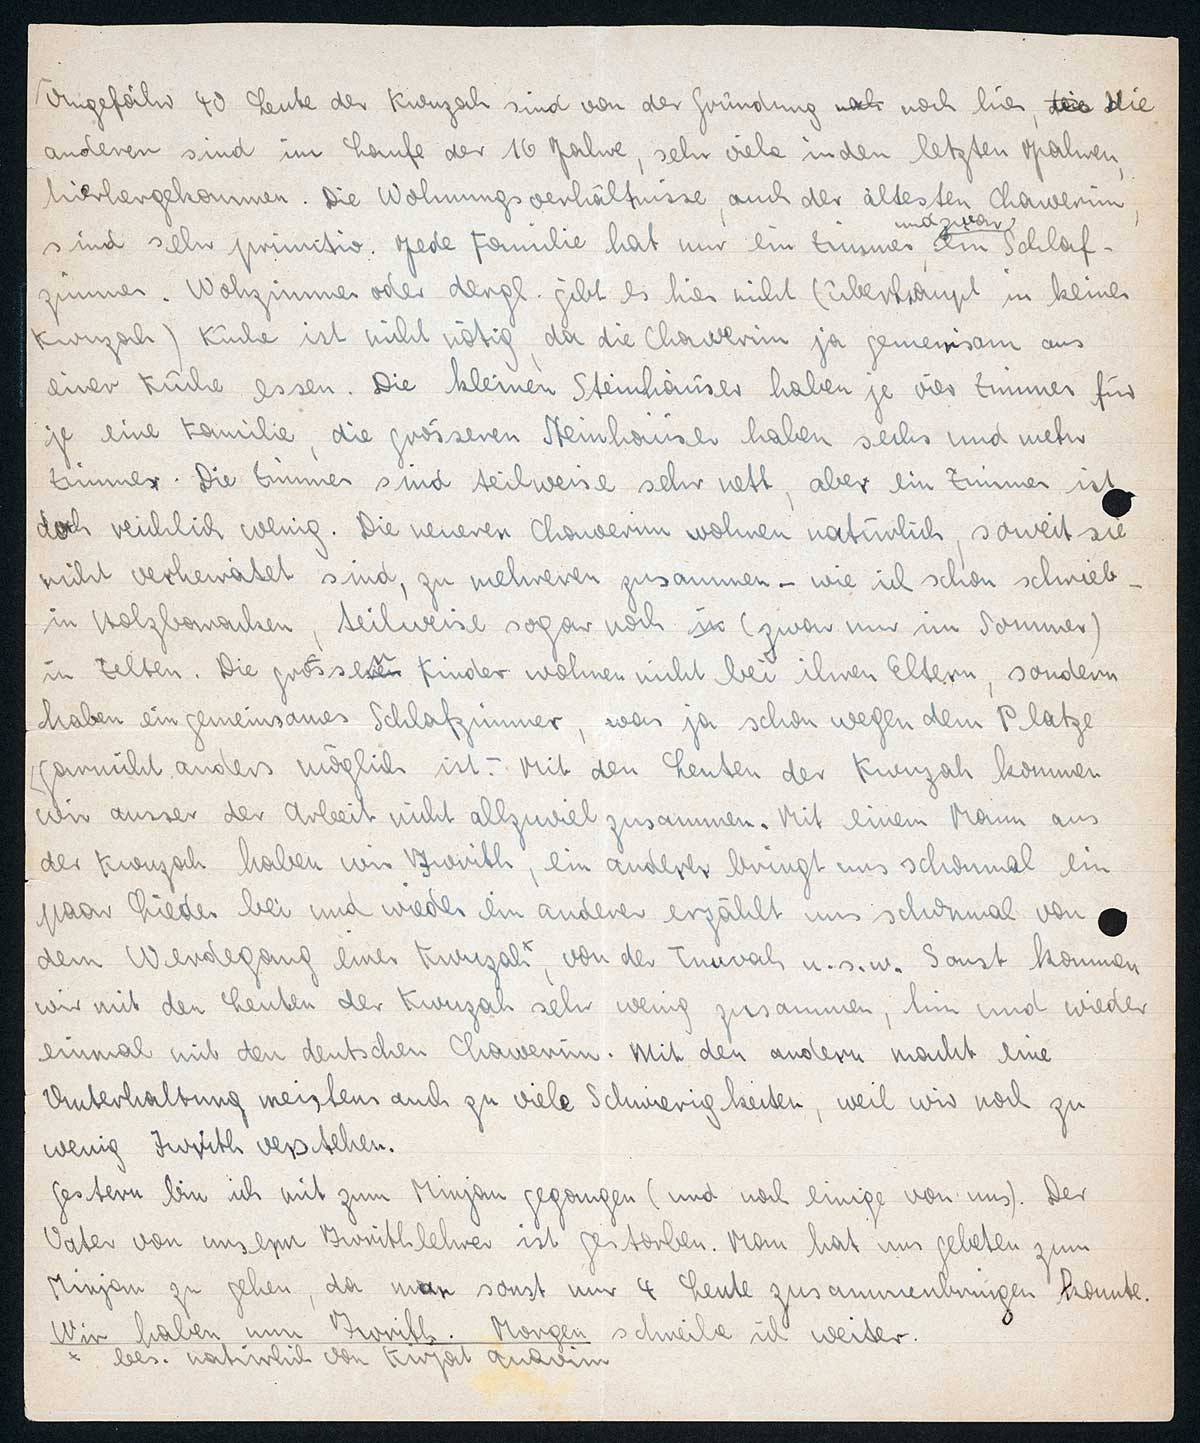 Ungefähr 40 Leute der Kwuzah sind von der Gründung noch hier, die
anderen sind im Laufe der 16 Jahre, sehr viele in den letzten Jahren,
hierhergekommen. Die Wohnungsverhältnisse, auch der ältesten Chawerim,
sind sehr primitiv. Jede Familie hat nur ein Zimmer, und zwar ein Schlaf-
zimmer. Wohzimmer oder dergl. gibt es hier nicht (überhaupt in keiner
Kwuzah) Küche ist nicht nötig, da die Chawerim ja gemeinsam aus
einer Küche essen. Die kleinen Steinhäuser haben je vier Zimmer für
je eine Familie, die grösseren Steinhäuser haben sechs und mehr
Zimmer. Die Zimmer sind teilweise sehr nett, aber ein Zimmer ist
doch reichlich wenig. Die neueren Chawerim wohnen natürlich, soweit sie
nicht verheiratet sind, zu mehreren zusammen – wie ich schon schrieb –
in Holzbaracken, teilweise sogar noch (zwar nur im Sommer)
in Zelten. Die grössern Kinder wohnen nicht bei ihren Eltern, sondern
haben ein gemeinsames Schlafzimmer, was ja schon wegen dem Platze
garnicht anders möglich ist.- Mit den Leuten der Kwuzah kommen
wir ausser der Arbeit nicht allzuviel zusammen. Mit einem Mann aus
der Kwuzah haben wir Iwrith, ein anderer bringt uns schonmal ein
paar Lieder bei und wieder ein anderer erzählt uns schonmal von
dem Werdegang einer Kwuzah*, von der Tnuvah u.s.w. Sonst kommen
wir mit den Leuten der Kwuzah sehr wenig zusammen, hin und wieder
einmal mit den deutschen Chawerim. Mit den andern macht eine
Unterhaltung meistens auch zu viele Schwierigkeiten, weil wir noch zu
wenig Iwrith verstehen.
Gestern bin ich mit zum Minjan gegangen (und noch einige von uns). Der
Vater von unserm Iwrithlehrer ist gestorben. Man hat uns gebeten zum
Minjam zu gehen, da man sonst nur 4 Leute zusammenbringen konnte.
Wir haben nun Iwrith. Morgen schreibe ich weiter.
* bes. natürlich von Kirjat Anavim